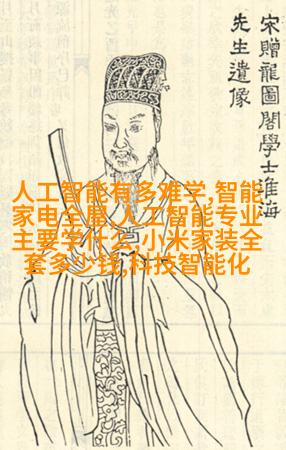 宋贈龍圖閣學士淮海
先生遺像
人工智能有多难学,智能
家电全屋,人工智能专业
主要学什么,小米家装全
套多少钱,科技智能化